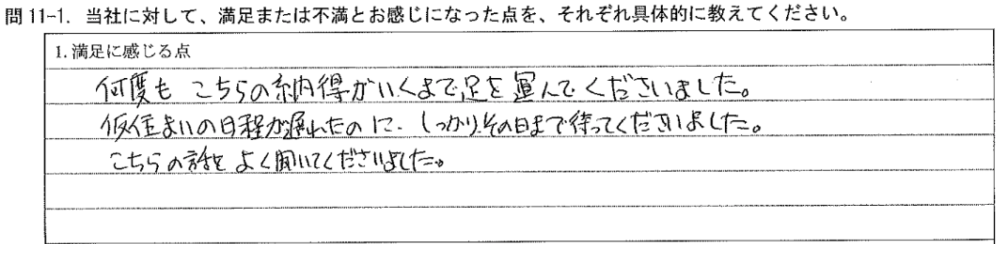 問11-1. 当社に対して、満足または不満とお感じになった点を、それぞれ具体的に教えてください。
1.満足に感じる点
何度も こちらの納得がいくまで足を運んでくださいました。
仮住まいの日程が遅れたのに、しっかりその日まで待ってくださいました。
こちらの話をよく聞いてくださいました。